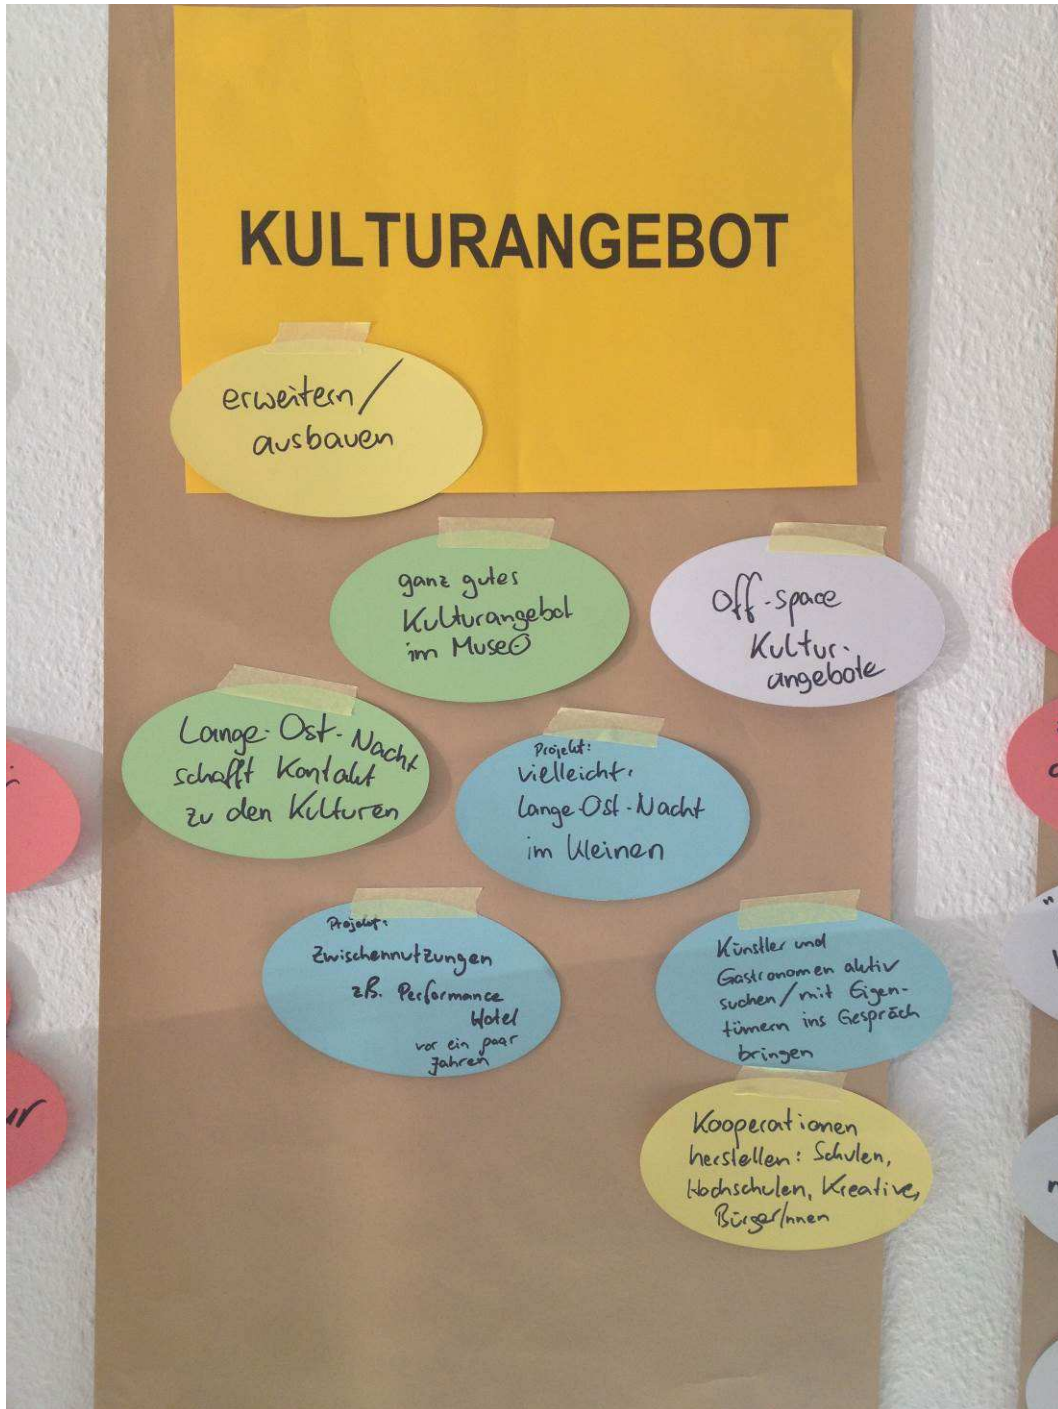 KULTURANGEBOT
erweitern/
ausbauen
ganz gutes
Kulturangebot
im MuseO
Off-space
Kultur-
angebote
Lange-Ost-Nacht
schafft Kontakt
zu den Kulturen
Projekt:
vielleicht:
Lange-Ost-Nacht
im Kleinen
Projekt:
Zwischennutzungen
z.B. Performance
Hotel
vor ein paar
Jahren
Künstler und
Gastronomen aktiv
suchen/mit Eigen-
tümern ins Gespräch
bringen
Kooperationen
herstellen: Schulen,
Hochschulen, Kreative,
BürgerInnen